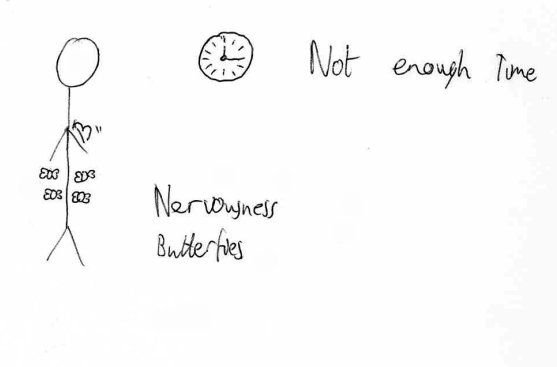 Not enough Time
Nervousness
Butterflies